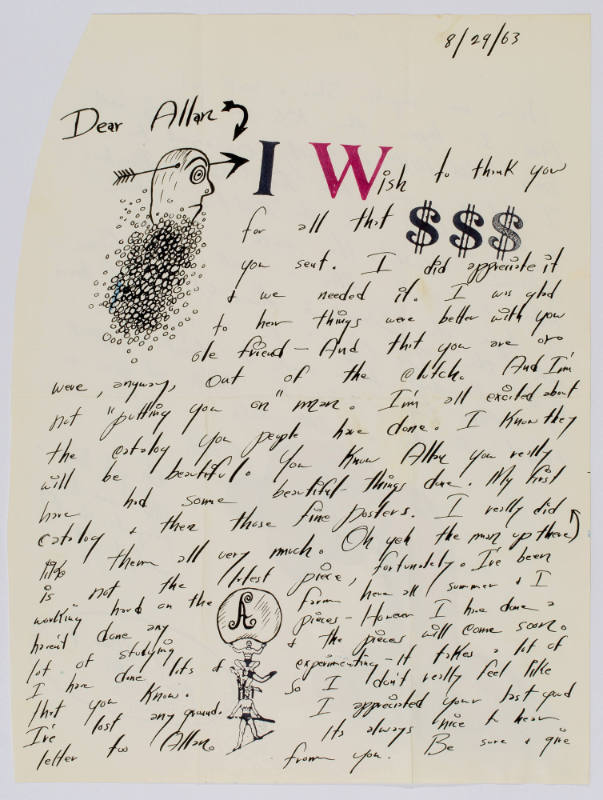 8/29/63
Dear Allan
I Wish to thank you
for all that $ $ $
you sent. I did appreciate it
& we needed it. I was glad
to hear things were better with you
ole friend - And that you are or
were, anyway, out of the clutch. And I'm
not "putting you on" man. I'm all excited about
the catalog you people have done. I know they
will be beautiful. You know Allan you really
have had some beautiful things done. My first
catalog & then those fine posters. I really did
like them all very much. Oh yeh the man up there
is not the latest piece, fortunately. I've been
working hard on the farm here all summer & I
haven't done any pieces - However I have done a
lot of studying & the pieces will come soon.
I have done lots of experimenting - it takes a lot of
that you know. So I don't really feel like
I've lost any ground. I appreciated your last good
letter too Allan. Its always nice to hear
from you. Be sure & give
A